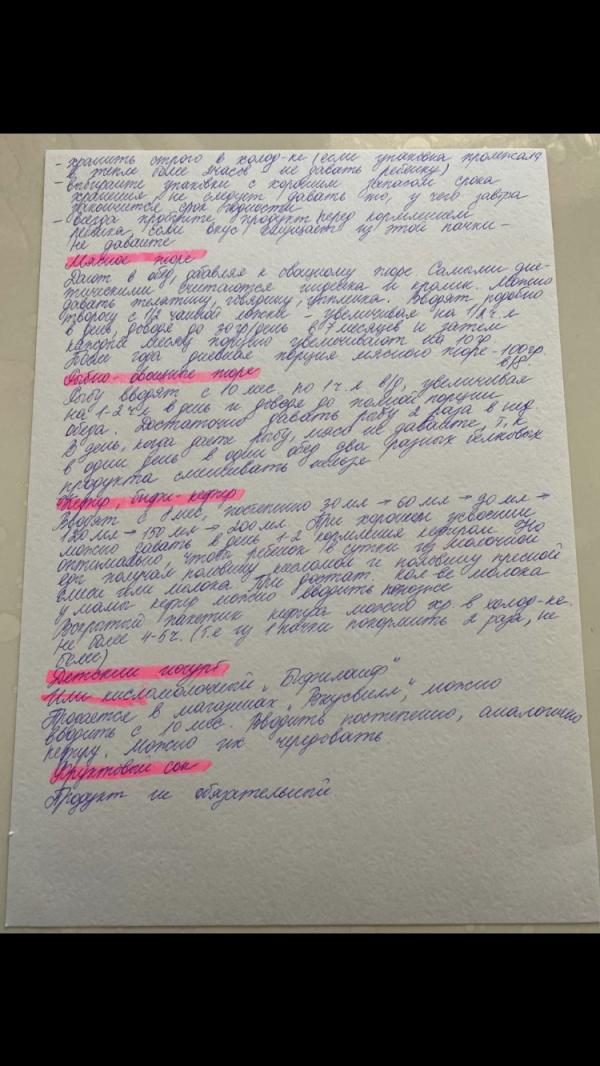 - хранить строго в холод-ке (если упаковка пролежала
в тепле более 2 часов - не давать ребёнку)
- выбирайте упаковки с хорошим запасом срока
хранения не следует давать то, у чего завтра
закончится срок годности
- всегда пробуйте продукт перед кормлением
ребёнка, если вкус смущает из этой пачки -
не давайте
Мясное пюре
Дают в обед, добавляя к овощному пюре. Самыми дие-
тическими считаются индейка и кролик. Можно
давать телятину, говядину, цыпленка. Вводят подобно
творогу с 1/2 чайной ложки - увеличивая на 1/2 ч.л
в день, доводя до 30 гр/день в 7 месяцев и затем
каждый месяц порцию увеличивают на 10 гр.
После года дневная порция мясного пюре - 100 гр.
в/д.
Рыбно-овощное пюре
Рыбу вводят с 10 мес. по 1 ч.л в/д, увеличивая
на 1-2 ч.л в день и доводя до полной порции
обеда. Достаточно давать рыбу 2 раза в нед.
В день, когда даете рыбу, мясо не давайте, т.к
в один день в один обед два разных белковых
продукта смешивать нельзя
Кефир, бифи-кефир
Вводят с 8 мес, постепенно 30 мл → 60 мл → 90 мл →
120 мл → 150 мл → 200 мл. При хорошем усвоении
можно давать в день 1-2 кормления кефиром. Но
оптимально, чтобы ребёнок в сутки из молочной
еды получал половину кисломол и половину пресной
смеси или молока. При достат. кол-ве молока
у мамы кефир можно вводить позже
Вскрытый пакетик кефира можно хр. в холод-ке
не более 4-5 ч. (т.е из 1 пачки покормить 2 раза, не
более)
Детский йогурт
Или кисломолочный "Бифилайф"
Продается в магазинах "Вкусвилл", можно
вводить с 10 мес. Вводить постепенно, аналогично
кефиру. Можно их чередовать.
Фруктовый сок
Продукт не обязательный